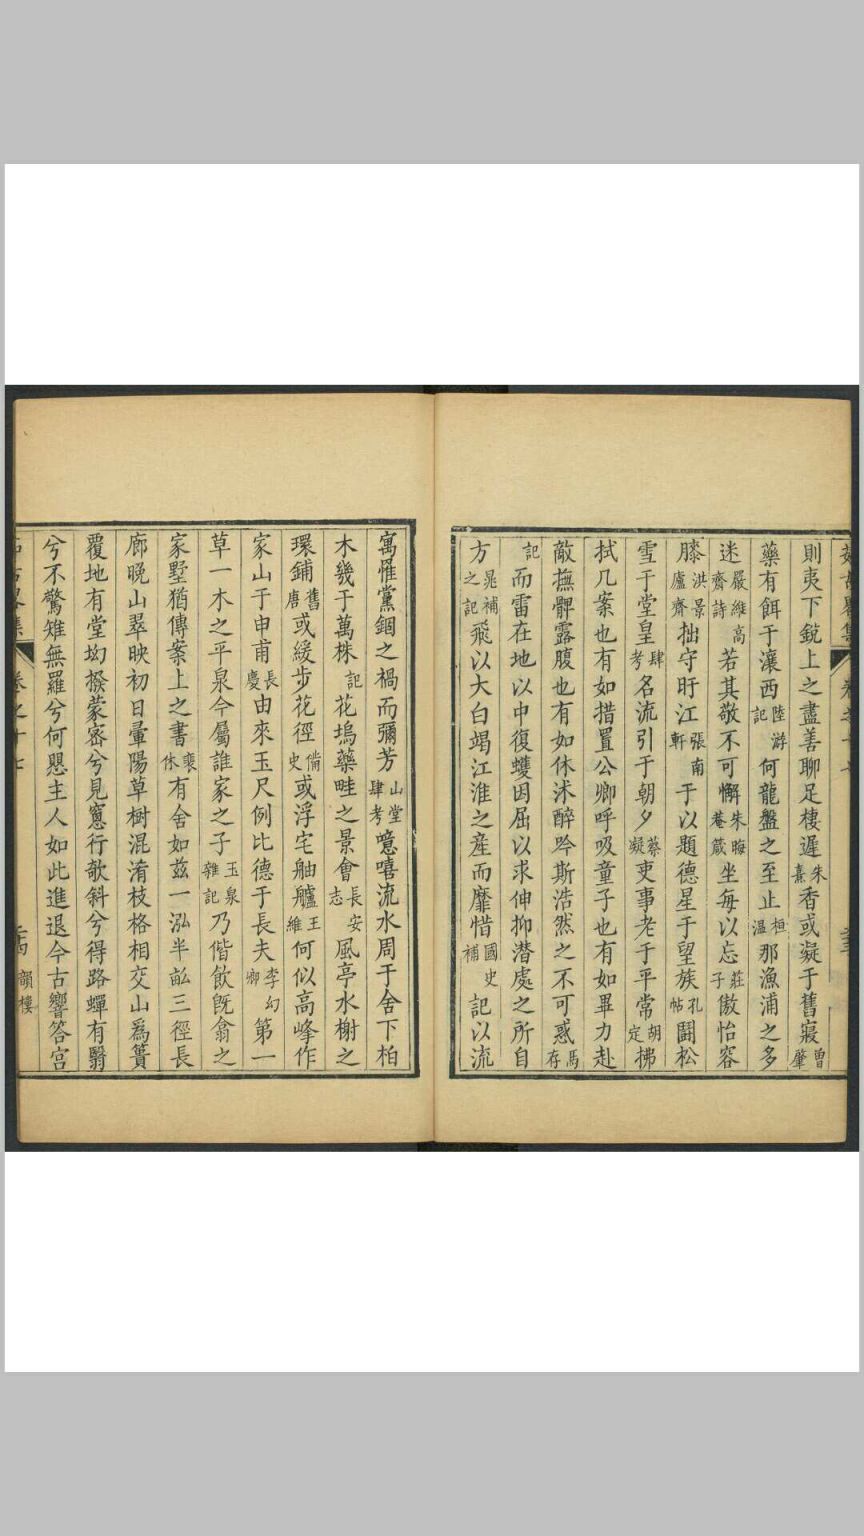 則夷下銳上之盡善聊足棲遲朱熹香或凝于舊寢曾肇
藥有餌于瀼西陸游記何龍盤之至止桓溫那漁浦之多
迷嚴維高齋詩若其敬不可懈朱晦菴箴坐每以忘莊子傲怡容
膝洪景廬齋拙守盱江張南軒于以題德星于望族孔帖鬪松
雪于堂皇肆考名流引于朝夕蔡凝吏事老于平常胡定拂
拭几案也有如措置公卿呼吸童子也有如畢力赴
敵撫髀露腹也有如休沭醉吟斯浩然之不可惑馬存
記而雷在地以中復蠖因屈以求伸抑潜處之所自
方晁補之記飛以大白竭江淮之産而靡惜國史補記以流
寓罹黨錮之禍而彌芳山堂肆考噫嘻流水周于舍下柏
木幾于萬株記花塢藥畦之景會長安志風亭水榭之
環鋪舊唐或緩步花徑備史或浮宅舳艫王維何似高峰作
家山于申甫長慶由來玉尺例比德于長夫李幻卿第一
草一木之平泉今屬誰家之子玉泉雜記乃偕飲既翕之
家墅猶傳案上之書裴休有舍如兹一泓半畝三徑長
廊晚山翠映初日暈陽草樹混淆枝格相交山爲簣
覆地有堂坳撥蒙密兮見窻行欹斜兮得路蟬有翳
兮不驚雉無羅兮何懼主人如此進退今古響答宫
卷之十七
韻樓